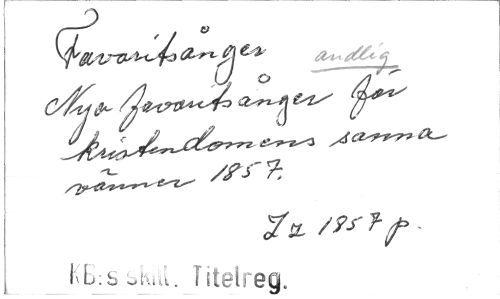 Favoritsånger
andlig
Nya favoritsånger för
kristendomens sanna
vänner 1857.
1857 p.
KB:s skill. Titelreg.